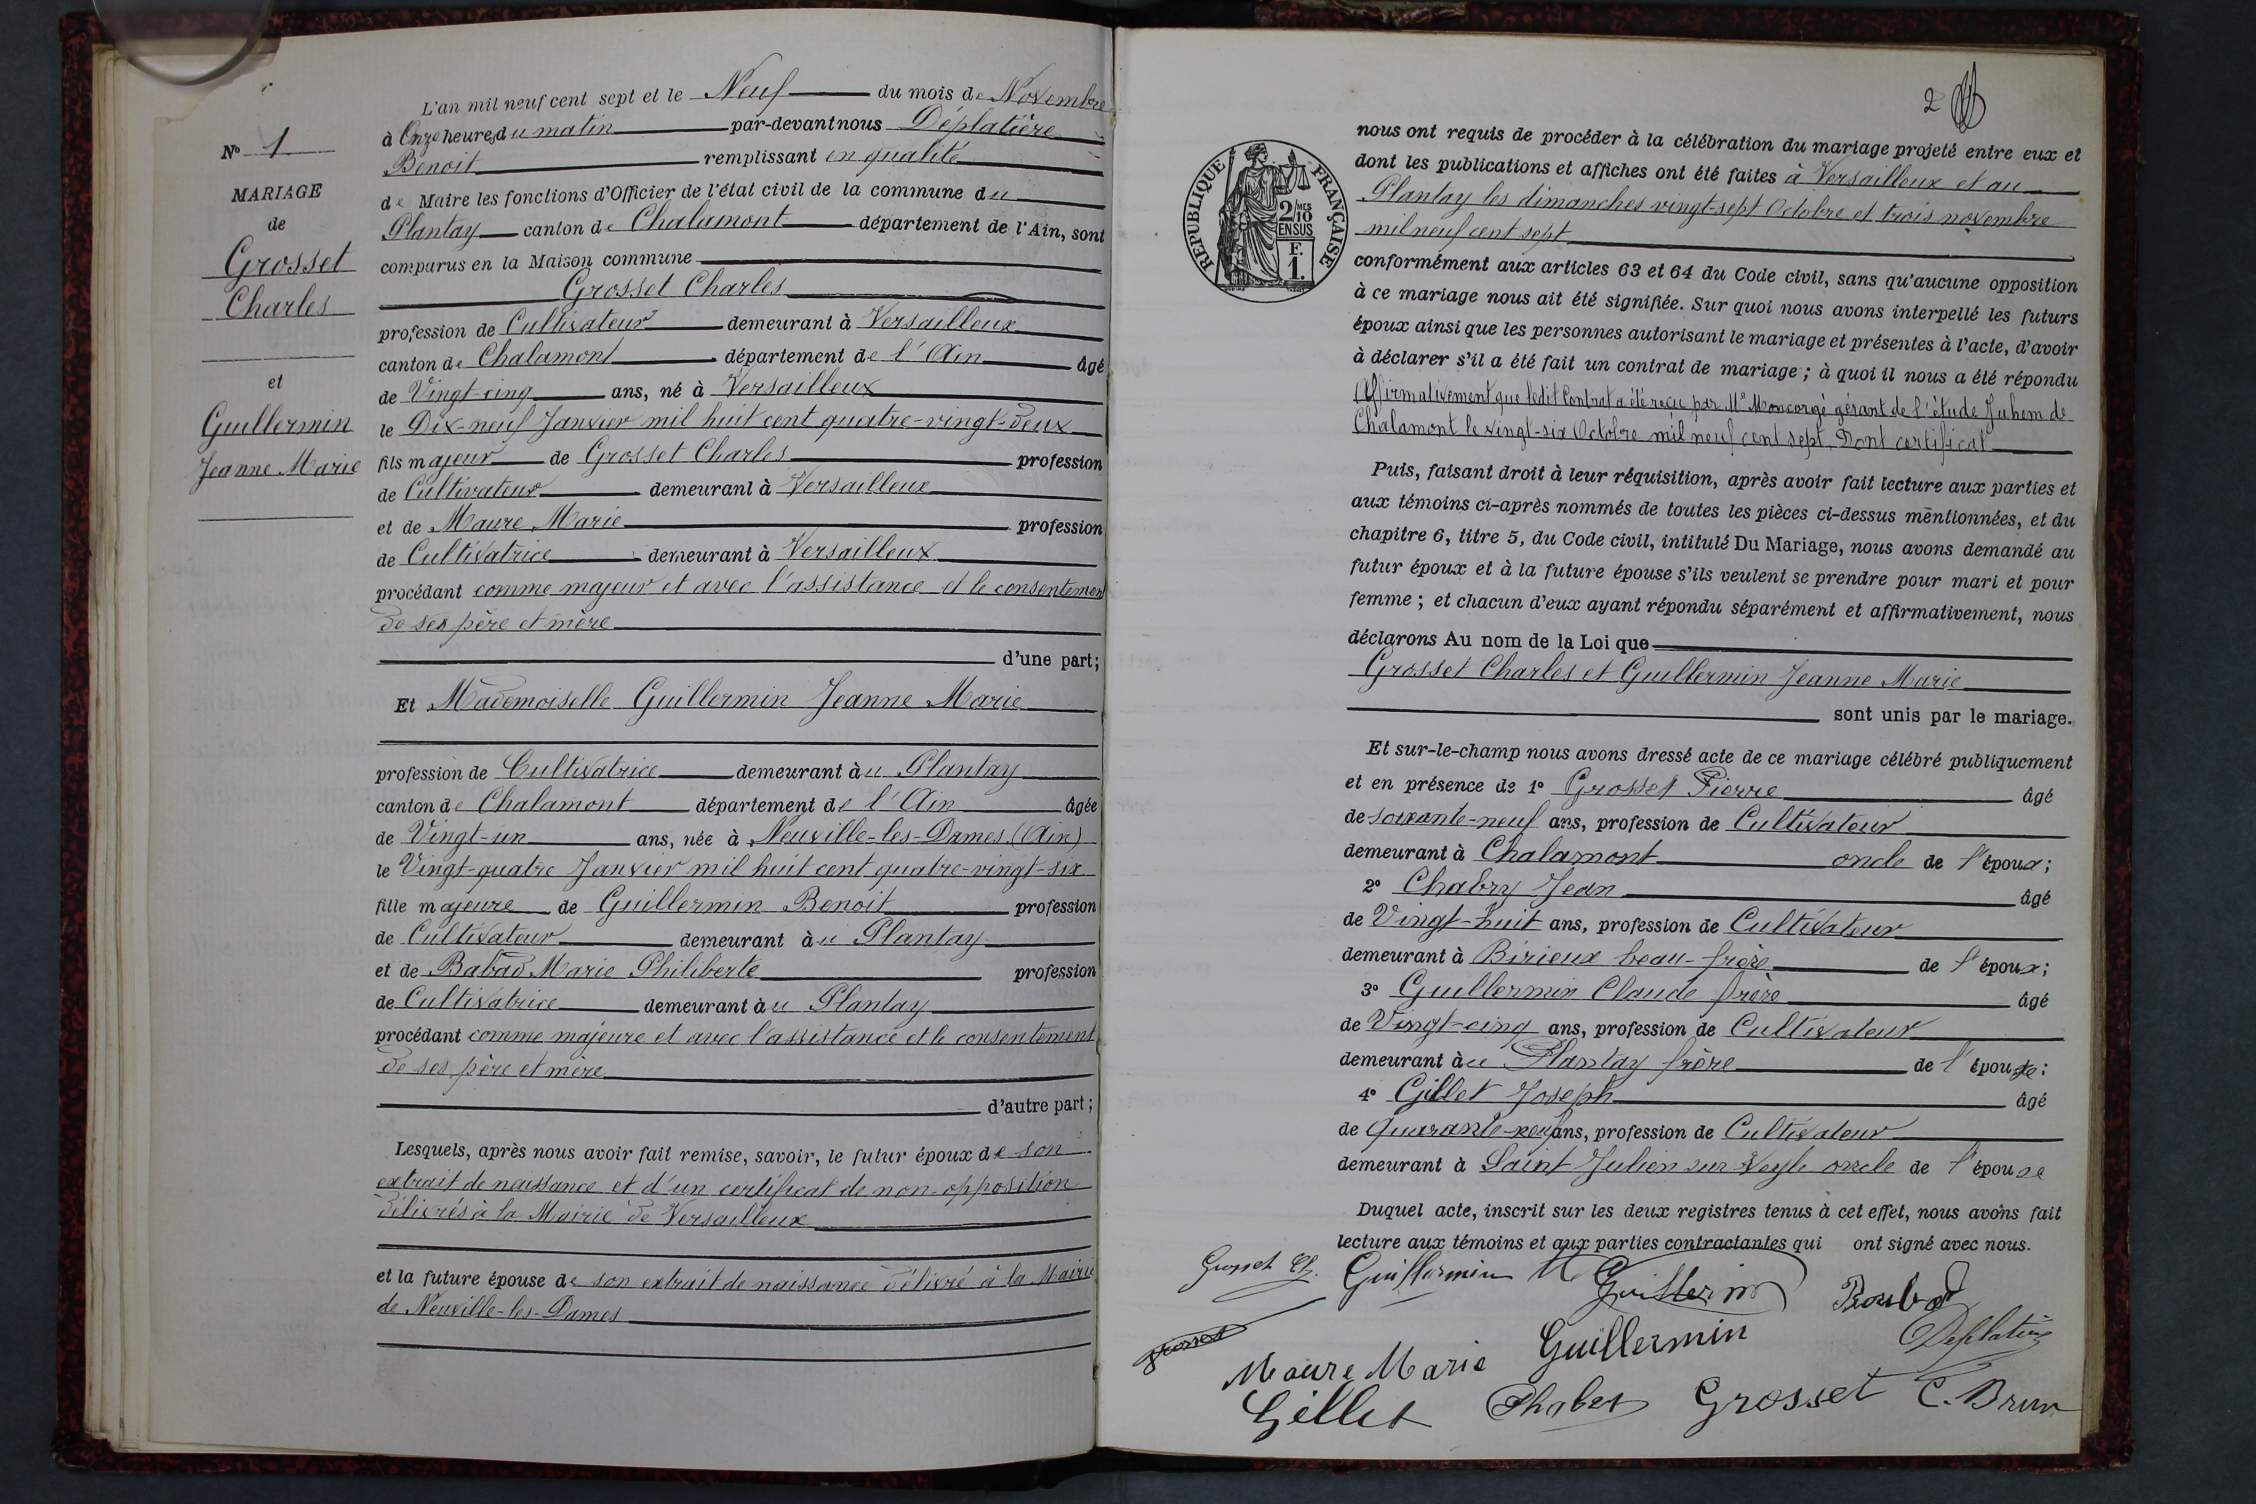 N° 1
MARIAGE
de
Grosset
Charles
et
Guillermin
Jeanne Marie
L'an mil neuf cent sept et le Neuf du mois de Novembre
à Onze heures du matin par-devant nous Déplatière
Benoit remplissant en qualité
de Maire les fonctions d'Officier de l'état civil de la commune du
Plantay canton de Chalamont département de l'Ain, sont
comparus en la Maison commune
Grosset Charles
profession de Cultivateur demeurant à Versailleux
canton de Chalamont département de l'Ain âgé
de Vingt-cinq ans, né à Versailleux
le Dix-neuf Janvier mil huit cent quatre-vingt-deux
fils majeur de Grosset Charles profession
de Cultivateur demeurant à Versailleux
et de Maure Marie profession
de Cultivatrice demeurant à Versailleux
procédant comme majeur et avec l'assistance et le consentement
de ses père et mère
d'une part;
Et Mademoiselle Guillermin Jeanne Marie
profession de Cultivatrice demeurant àu Plantay
canton de Chalamont département de l'Ain âgée
de Vingt-un ans, née à Neuville-les-Dames (Ain)
le Vingt-quatre Janvier mil huit cent quatre-vingt-six
fille majeure de Guillermin Benoit profession
de Cultivateur demeurant àu Plantay
et de Babad Marie Philiberte profession
de Cultivatrice demeurant àu Plantay
procédant comme majeure et avec l'assistance et le consentement
de ses père et mère
d'autre part;
Lesquels, après nous avoir fait remise, savoir, le futur époux de son
extrait de naissance et d'un certificat de non-opposition
délivrés à la Mairie de Versailleux
et la future épouse de son extrait de naissance délivré à la Mairie
de Neuville-les-Dames
2
REPUBLIQUE FRANÇAISE
2/10 MES
EN SUS
F.
1.
nous ont requis de procéder à la célébration du mariage projeté entre eux et
dont les publications et affiches ont été faites à Versailleux et au
Plantay les dimanches vingt-sept Octobre et trois novembre
mil neuf cent sept
conformément aux articles 63 et 64 du Code civil, sans qu'aucune opposition
à ce mariage nous ait été signifiée. Sur quoi nous avons interpellé les futurs
époux ainsi que les personnes autorisant le mariage et présentes à l'acte, d'avoir
à déclarer s'il a été fait un contrat de mariage; à quoi il nous a été répondu
Affirmativement que ledit Contrat a été reçu par Me Moncorgé gérant de l'étude Juhem de
Chalamont le vingt-six Octobre mil neuf cent sept. Dont certificat
Puis, faisant droit à leur réquisition, après avoir fait lecture aux parties et
aux témoins ci-après nommés de toutes les pièces ci-dessus mentionnées, et du
chapitre 6, titre 5, du Code civil, intitulé Du Mariage, nous avons demandé au
futur époux et à la future épouse s'ils veulent se prendre pour mari et pour
femme; et chacun d'eux ayant répondu séparément et affirmativement, nous
déclarons Au nom de la Loi que
Grosset Charles et Guillermin Jeanne Marie
sont unis par le mariage.
Et sur-le-champ nous avons dressé acte de ce mariage célébré publiquement
et en présence de 1° Grosset Pierre âgé
de soixante-neuf ans, profession de Cultivateur
demeurant à Chalamont oncle de l'époux;
2° Chabry Jean âgé
de Vingt-huit ans, profession de Cultivateur
demeurant à Birieux beau-frère de l'époux;
3° Guillermin Claude frère âgé
de Vingt-cinq ans, profession de Cultivateur
demeurant àu Plantay frère de l'épouse;
4° Gillet Joseph âgé
de Quarante-neuf ans, profession de Cultivateur
demeurant à Saint Julien sur Veyle oncle de l'épouse
Duquel acte, inscrit sur les deux registres tenus à cet effet, nous avons fait
lecture aux témoins et aux parties contractantes qui ont signé avec nous.
Grosset Ch. Guillermin Guillermin
Grosset Guillermin Déplatière
Maure Marie
Gillet Grosset C. Brun